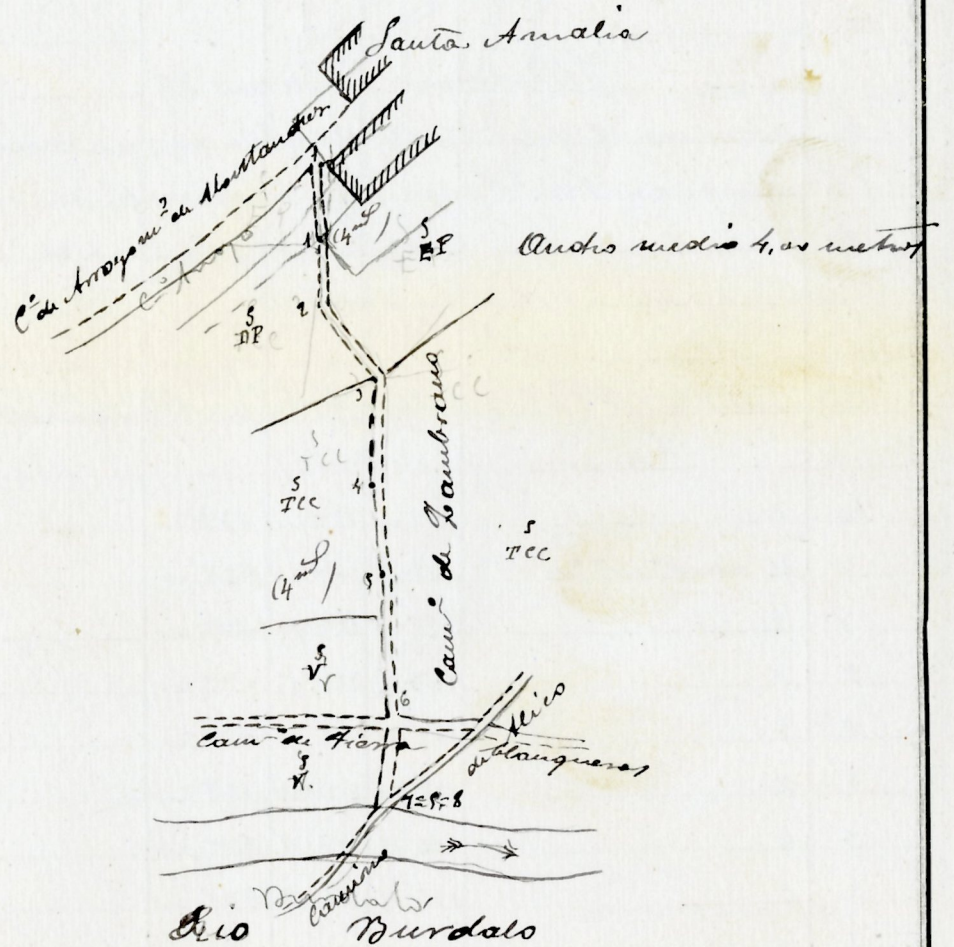 Santa Amalia
C.º de Arroyo m.º de
C.º Arroyo
1 (4 md)
S
DP
Ancho medio 4,00 metros
2
S
DP
3
CC
S
TCC
S
TCC
4
Cam.º de Zambrano
S
TCC
(4 md)
5
S
V
6
Cam.º de
de Blanqueras
S
V.
7=5=8
Camino
Burdalo
Rio Burdalo